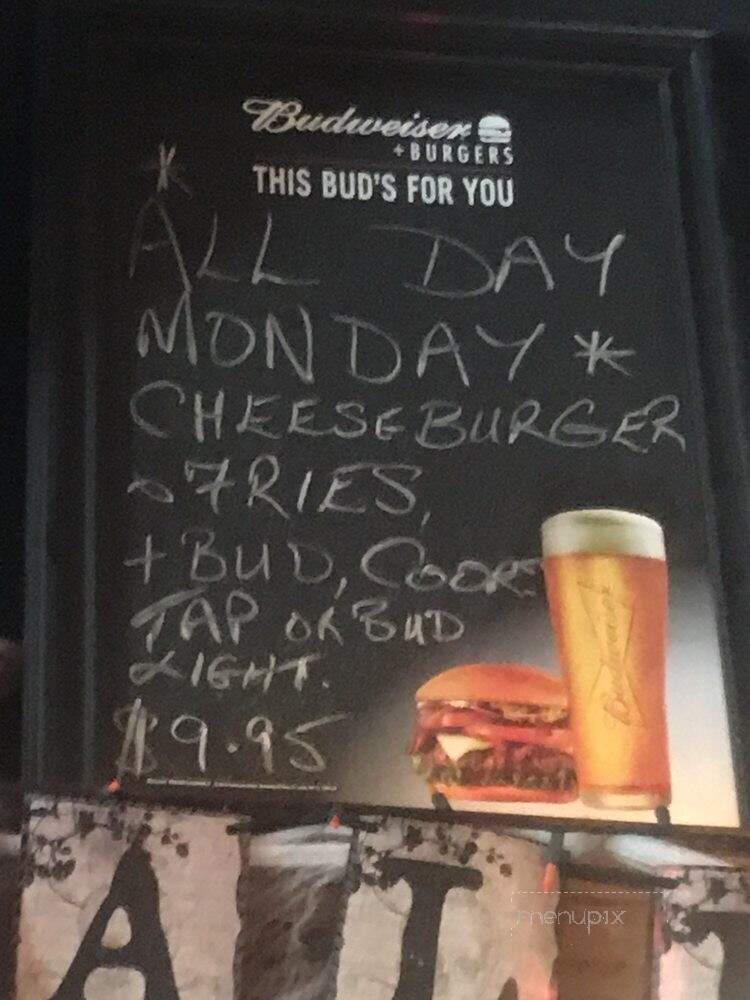 Budweiser
+ BURGERS
THIS BUD'S FOR YOU
*
ALL DAY
MONDAY *
CHEESEBURGER
FRIES,
+ BUD, COORS
TAP OR BUD
LIGHT.
$9.95
Budweiser
A L
menupix